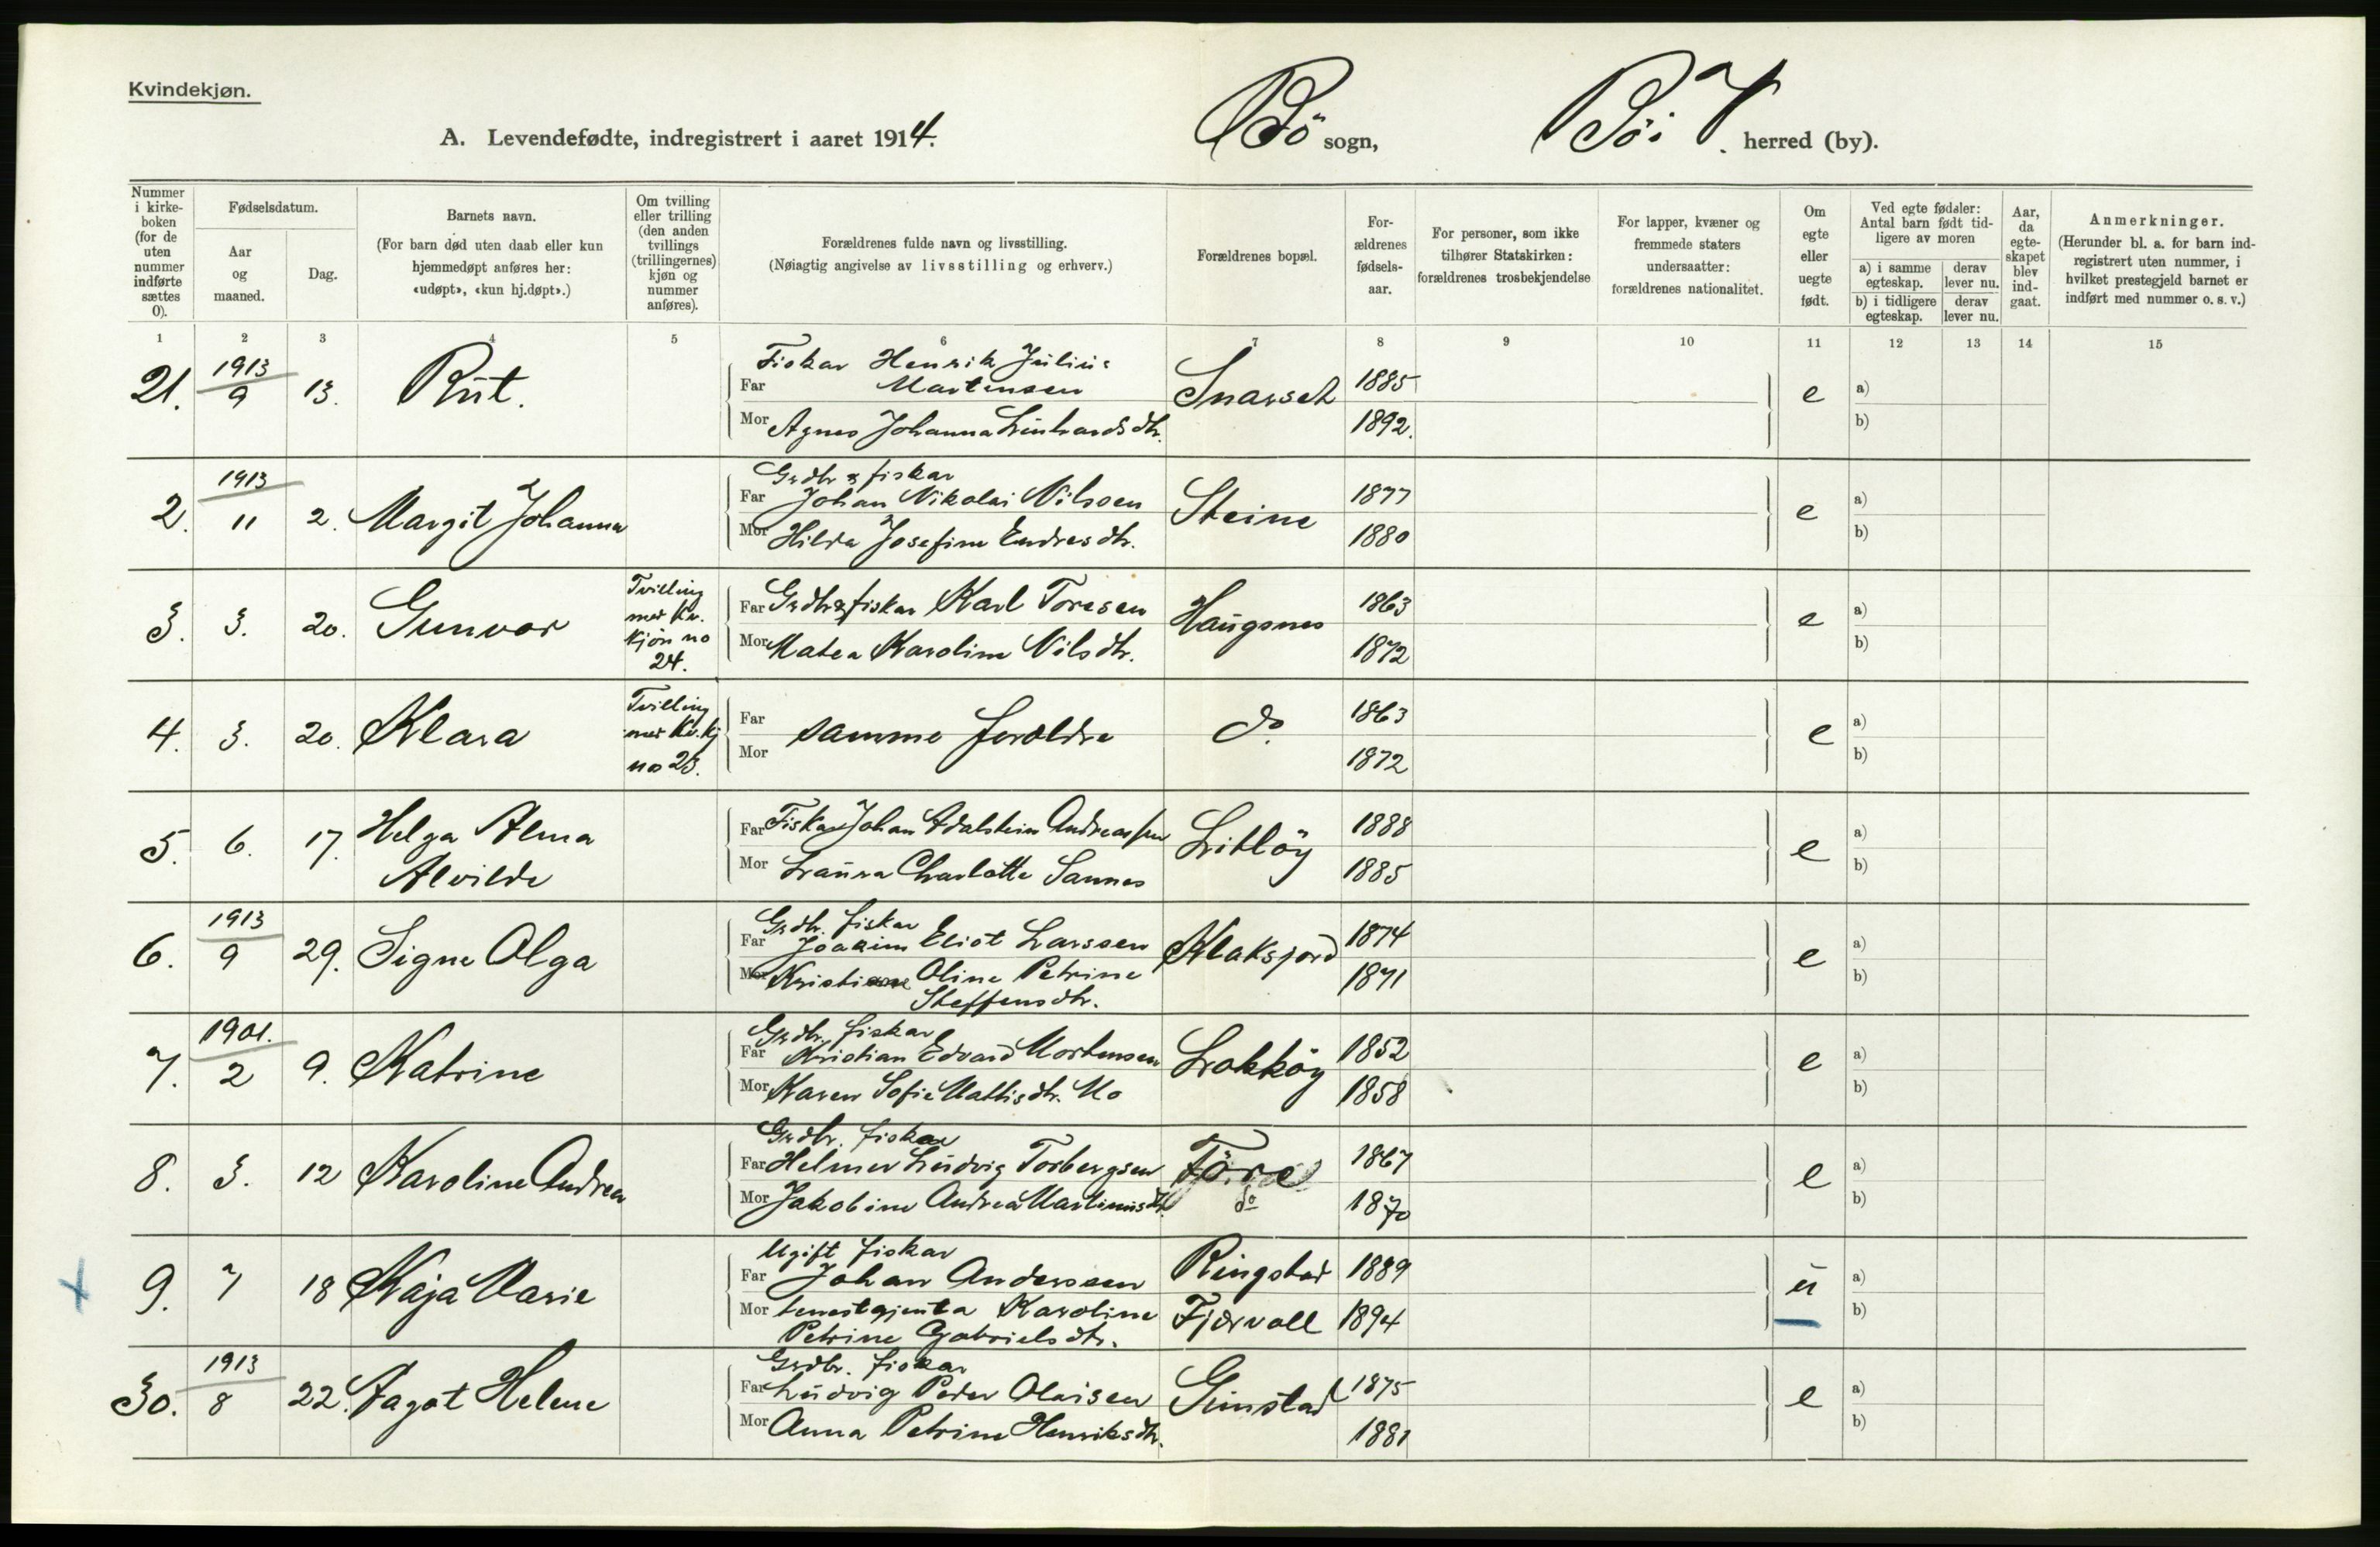 Kvindekjøn.
A. Levendefødte, indregistrert i aaret 1914. Bö sogn, Bö i V. herred (by).
Nummer i kirkeboken (for de uten nummer indførte sættes 0).
Fødselsdatum.
Aar og maaned.
Dag.
Barnets navn.
(For barn død uten daab eller kun hjemmedøpt anføres her: «udøpt», «kun hj.døpt».)
Om tvilling eller trilling (den anden tvillings (trillingernes) kjøn og nummer anføres).
Forældrenes fulde navn og livsstilling.
(Nøiagtig angivelse av livsstilling og erhverv.)
Forældrenes bopæl.
For-ældrenes fødsels-aar.
For personer, som ikke tilhører Statskirken: forældrenes trosbekjendelse
For lapper, kvæner og fremmede staters undersaatter: forældrenes nationalitet.
Om egte eller uegte født.
Ved egte fødsler: Antal barn født tid-ligere av moren
a) i samme egteskap. derav lever nu.
b) i tidligere egteskap. derav lever nu.
Aar, da egte-skapet blev ind-gaat.
Anmerkninger.
(Herunder bl. a. for barn ind-registrert uten nummer, i hvilket prestegjeld barnet er indført med nummer o. s. v.)
1 2 3 4 5 6 7 8 9 10 11 12 13 14 15
21. 1913/9 13. Rut.
Fiskar Henrik Julius
Far Martensen Snarset 1885 e a)
Mor Agnes Johanna Linhardsdtr. 1892. b)
2. 1913/11 2. Margit Johanna
Grdbr & fiskar
Far Johan Nikolai Nilssen Steine 1877 e a)
Mor Hilda Josefine Endresdtr. 1880 b)
3. 3. 20. Gunvor Tvilling met Kv. kjön no 24.
Far Grdbr & fiskar Karl Toresen Haugsnes 1863 e a)
Mor Matea Karoline Nilsdtr. 1872 b)
4. 3. 20. Klara Tvilling met Kv.kj no 23.
Far samme foreldre do. 1863 e a)
Mor 1872 b)
5. 6. 17. Helga Alma Alvilde
Far Fiskar Johan Adalstein Andreassen Litlöy 1888 e a)
Mor Laura Charlotte Sannes 1885 b)
6. 1913/9 29. Signe Olga
Grdbr. fiskar
Far Joakim Eliot Larssen Klaksjord 1874 e a)
Mor Kristiane Oline Petrine 1871 b)
Steffensdtr.
7. 1901./2 9. Katrine
Grdbr. fiskar
Far Kristian Edvard Mortensen Lokköy 1852 e a)
Mor Karen Sofie Mattisdtr. Mo 1858 b)
8. 3. 12 Karoline Andrea
Grdbr. fiskar
Far Helmer Ludvig Torbergsen Före 1867 e a)
Mor Jakobine Andrea Martinusdtr. do 1870 b)
9. 7 18 Kaja Marie
Ugift fiskar
Far Johan Anderssen Ringstad 1889 u a)
Mor tenestgjenta Karoline Fjærvoll 1894 b)
Petrine Gabrielsdtr.
30. 1913/8 22. Dagot Helene
Grdbr. fiskar
Far Ludvig Peder Olaisen Guinstad 1875 e a)
Mor Anna Petrine Henriksdtr. 1881 b)